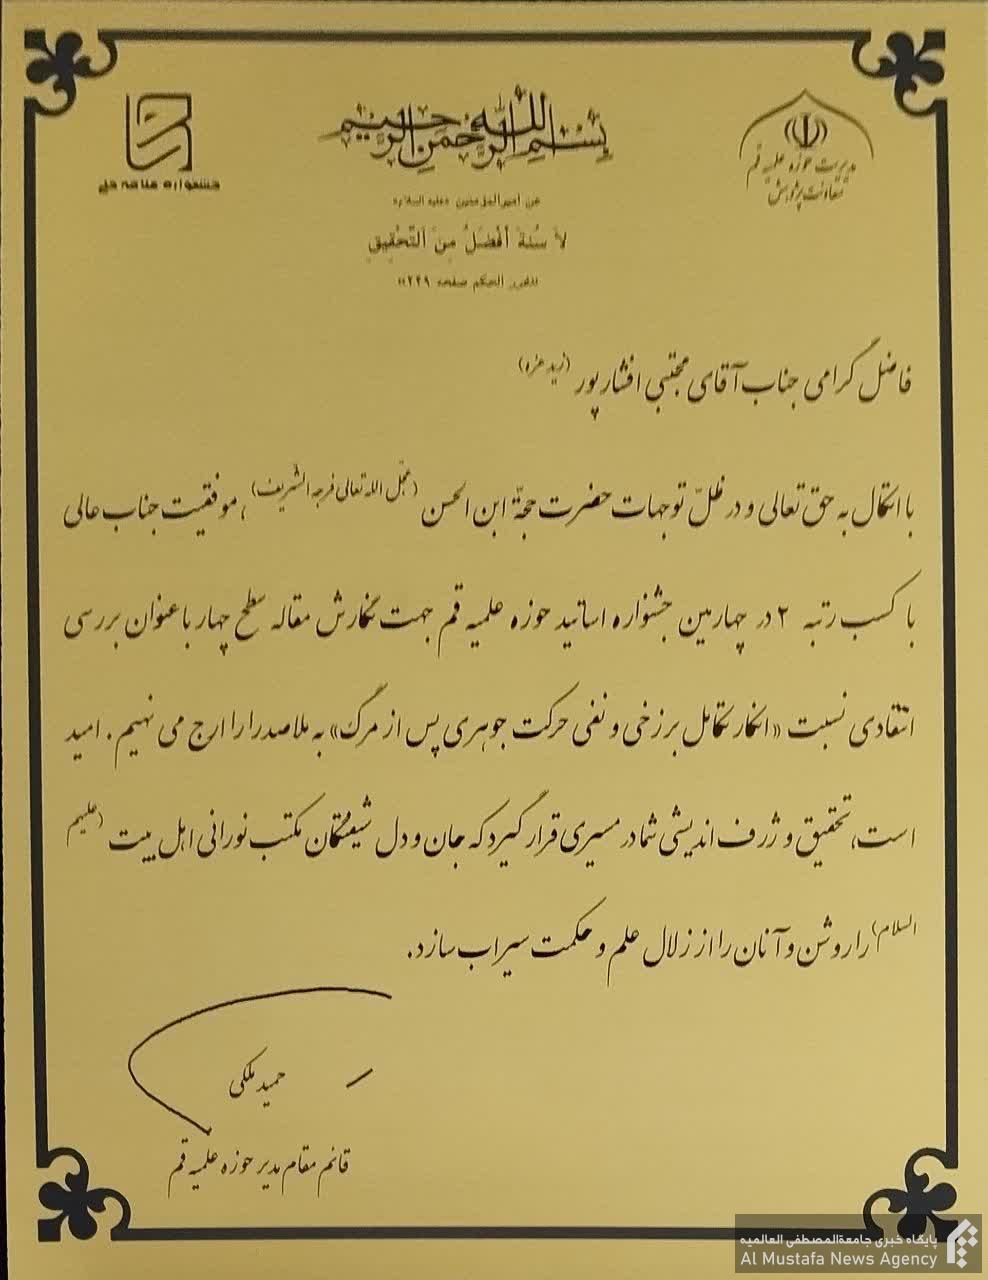 بسم الله الرحمن الرحیم
مدیریت حوزه علمیه قم
معاونت پژوهش
جشنواره علامه حلی
عن امیرالمؤمنین «علیه السلام»
لاَ سُنَّةَ أَفْضَلُ مِنَ التَّحْقِیقِ
«غرر الحکم صفحه ۲۴۹»
فاضل گرامی جناب آقای مجتبی افشارپور (زید عزه)
با اتکال به حق تعالی و در ظلّ توجهات حضرت حجّة ابن الحسن (عجّل الله تعالی فرجه الشریف)، موفقیت جناب عالی
با کسب رتبه ۲ در چهارمین جشنواره اساتید حوزه علمیه قم جهت نگارش مقاله سطح چهار با عنوان بررسی
انتقادی نسبت «انکار تکامل برزخی و نفی حرکت جوهری پس از مرگ» به ملاصدرا را ارج می نهیم. امید
است، تحقیق و ژرف اندیشی شما در مسیری قرار گیرد که جان و دل شیفتگان مکتب نورانی اهل بیت (علیهم
السلام) را روشن و آنان را از زلال علم و حکمت سیراب سازد.
حمید ملکی
قائم مقام مدیر حوزه علمیه قم
پایگاه خبری جامعةالمصطفی العالمیه
Al Mustafa News Agency